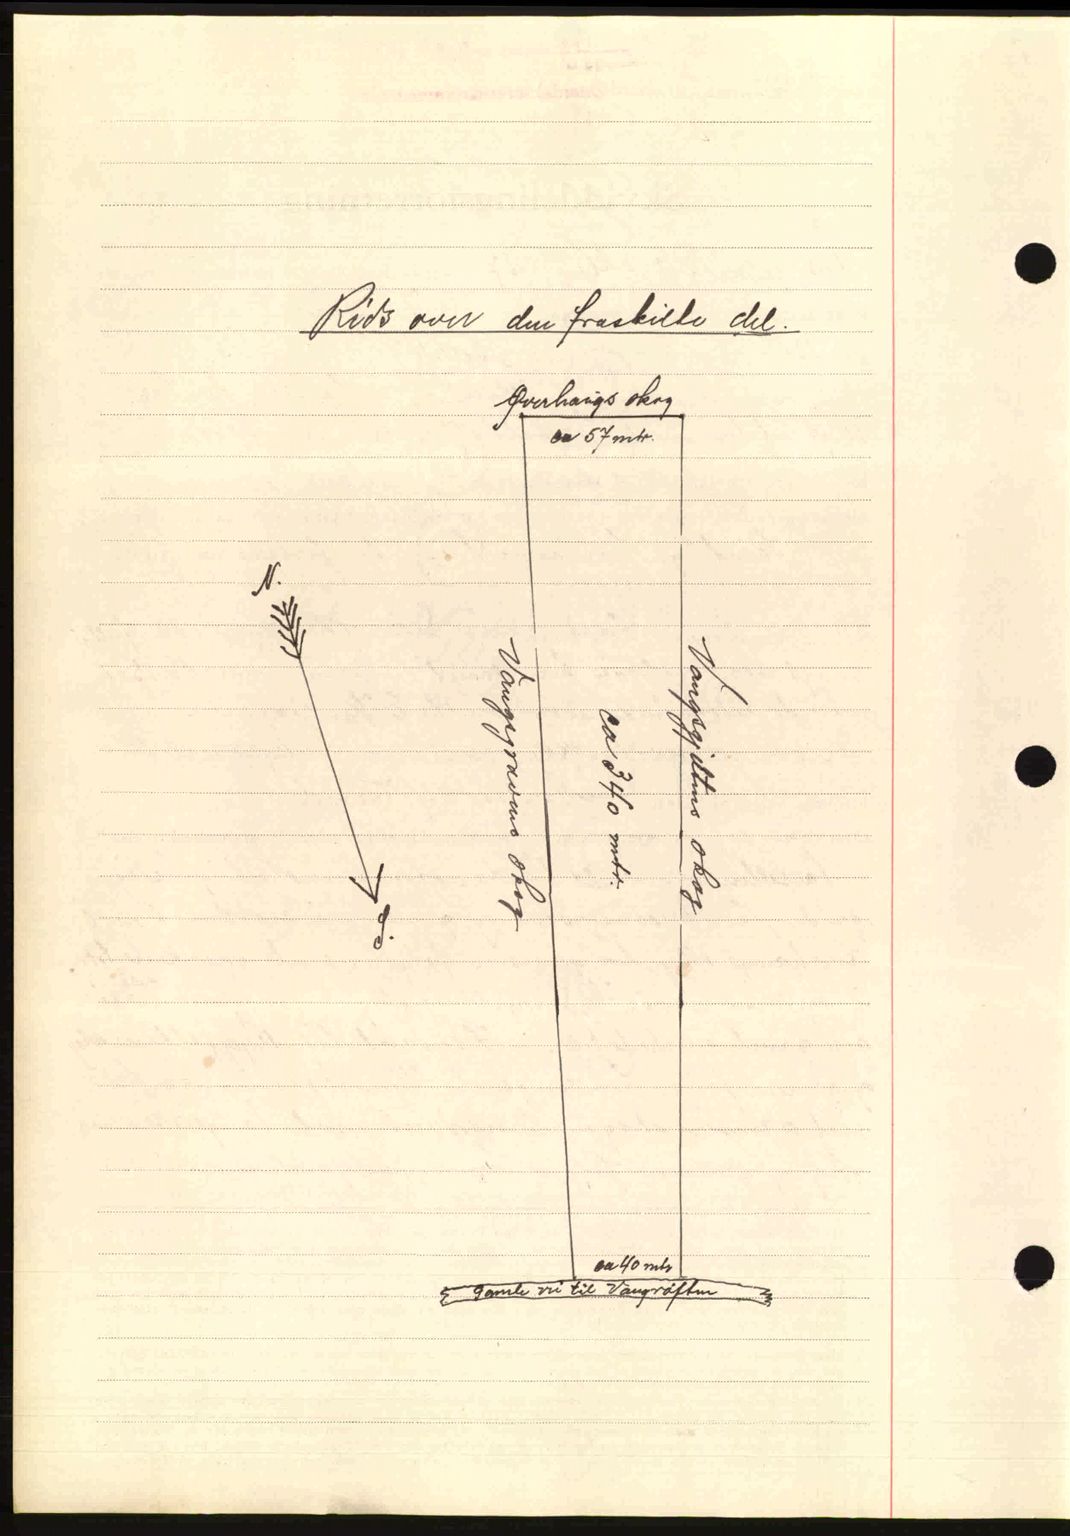 Rids over den fraskilte del.
Øverhaugs skog
ca 57 mtr.
N.
Vangsgravens skog
ca 340 mtr.
Vangsgjettens skog
S.
ca 40 mtr
gamle vei til Vangrøften